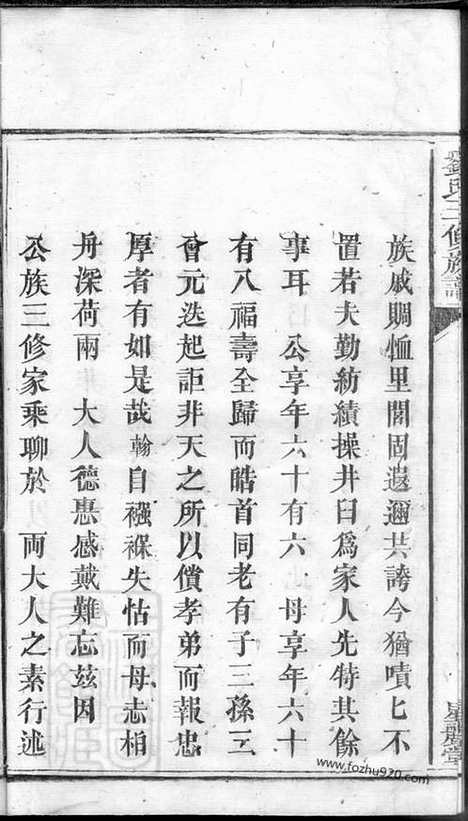 族戚賙恤里閭固遐邇共誇今猶嘖匕不
置若夫勤紡績操井臼爲家人先特其餘
事耳 公享年六十有六 母享年六十
有八福壽全歸而皓首同老有子三孫三
會元迭起詎非天之所以償孝弟而報忠
厚者有如是哉翰自襁褓失怙而母志相
舟深荷兩 大人德惠感戴難忘茲因
公族三修家乘聊於 兩大人之素行述
氏三修族譜
www.fozhu920.com